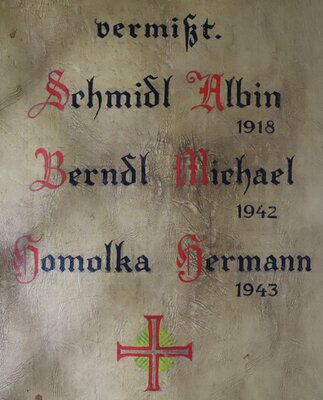 vermißt.
Schmidl Albin
1918
Berndl Michael
1942
Homolka Hermann
1943